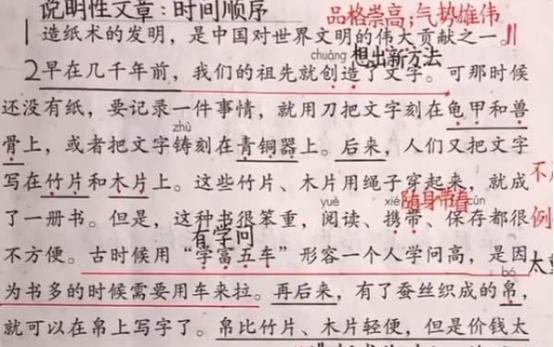 说明性文章：时间顺序
品格崇高；气势雄伟
1 造纸术的发明，是中国对世界文明的伟大贡献之一。
chuàng 想出新方法
2 早在几千年前，我们的祖先就创造了文字。可那时候
还没有纸，要记录一件事情，就用刀把文字刻在龟甲和兽
zhù
骨上，或者把文字铸刻在青铜器上。后来，人们又把文字
写在竹片和木片上。这些竹片、木片用绳子穿起来，就成
yuè xié 随身带着 cún
了一册书。但是，这种书很笨重，阅读、携带、保存都很
例
有学问
不方便。古时候用“学富五车”形容一个人学问高，是因
太
bó
为书多的时候需要用车来拉。再后来，有了蚕丝织成的帛，
就可以在帛上写字了。帛比竹片、木片轻便，但是价钱太